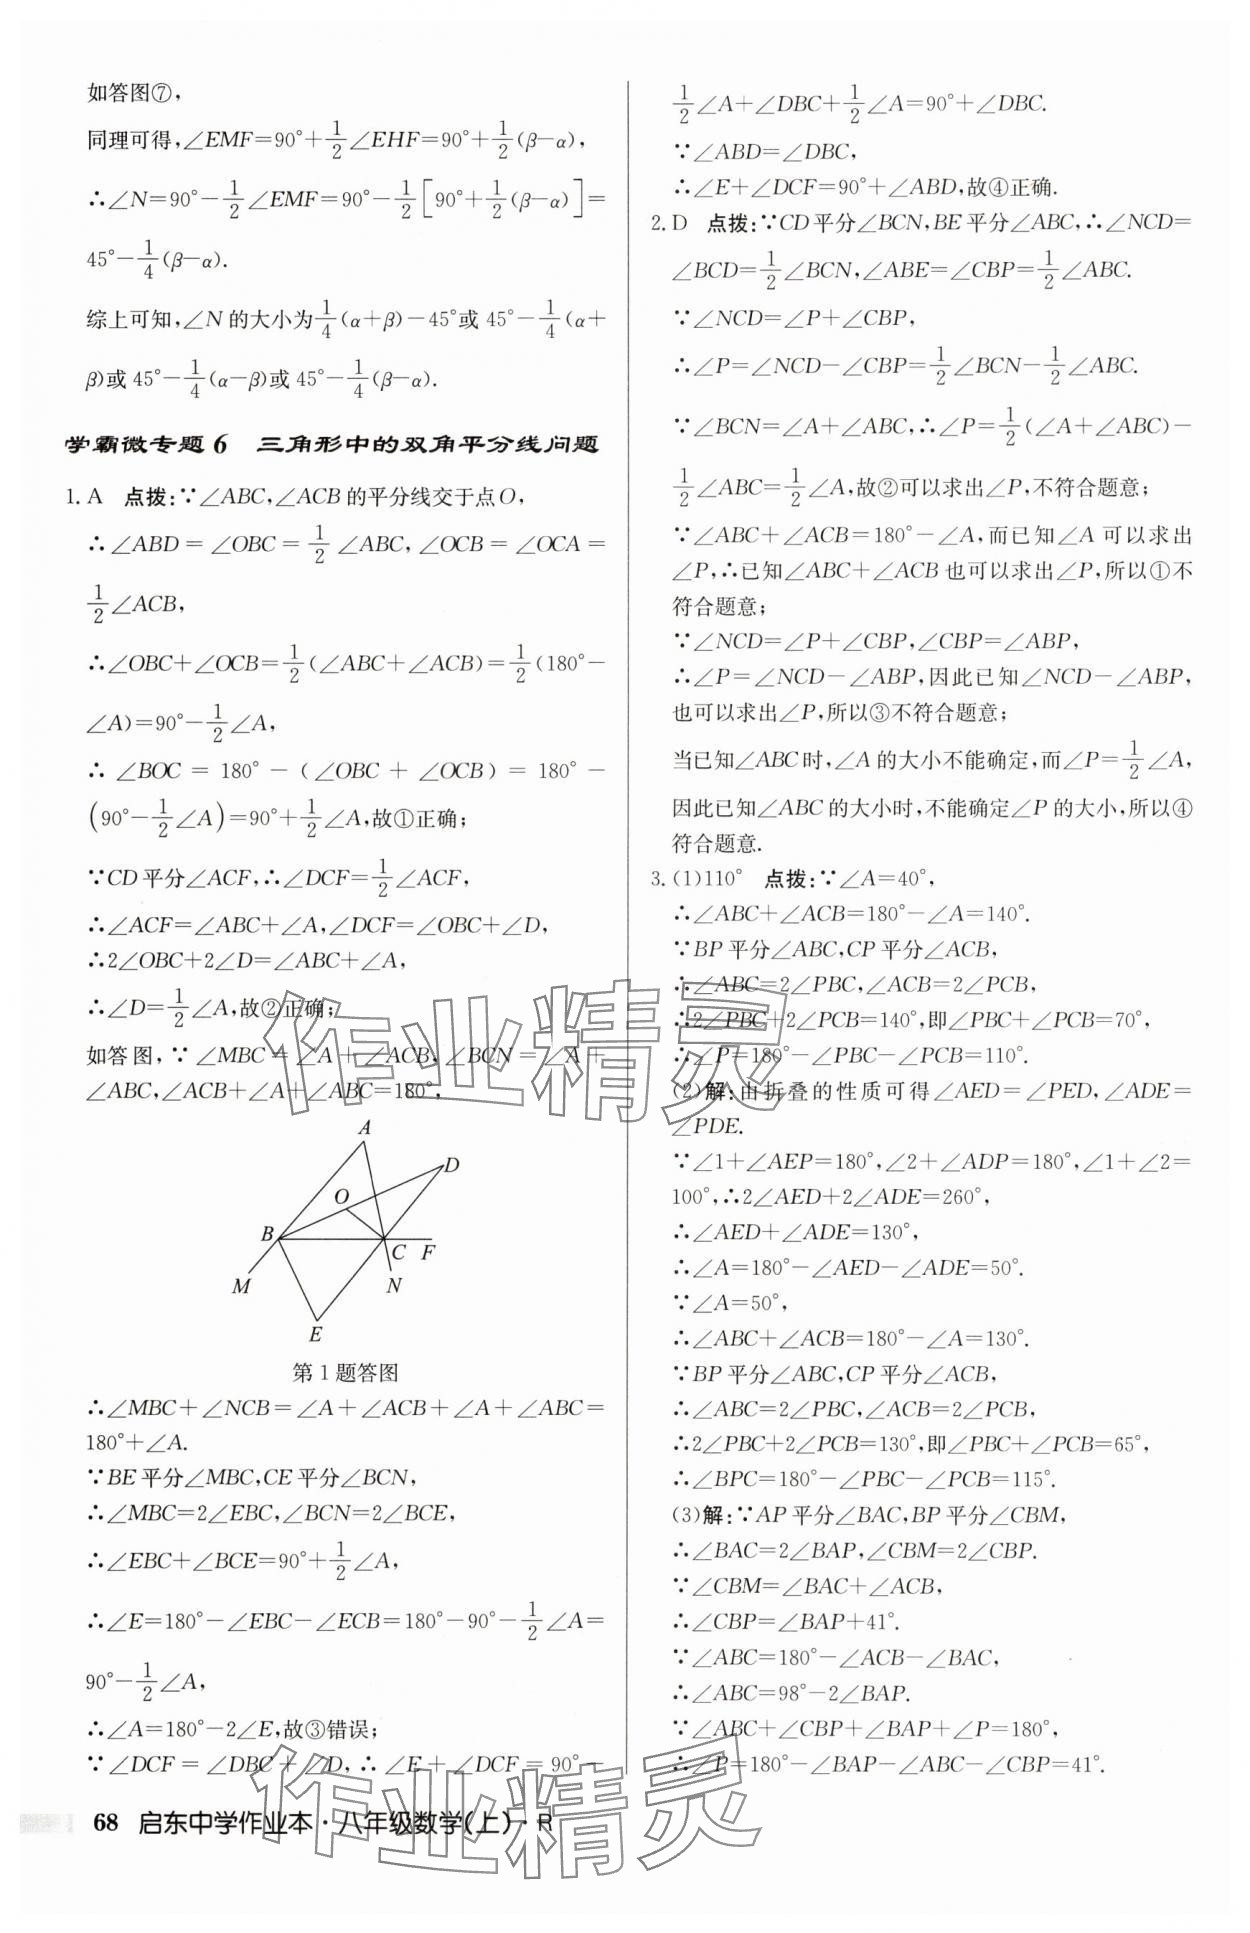 如答图⑦,
同理可得,∠EMF=90°+1/2∠EHF=90°+1/2(β-α),
∴∠N=90°-1/2∠EMF=90°-1/2[90°+1/2(β-α)]=
45°-1/4(β-α).
综上可知,∠N的大小为1/4(α+β)-45°或45°-1/4(α+
β)或45°-1/4(α-β)或45°-1/4(β-α).
学霸微专题6 三角形中的双角平分线问题
1. A 点拨:∵∠ABC,∠ACB的平分线交于点O,
∴∠ABD=∠OBC=1/2∠ABC,∠OCB=∠OCA=
1/2∠ACB,
∴∠OBC+∠OCB=1/2(∠ABC+∠ACB)=1/2(180°-
∠A)=90°-1/2∠A,
∴∠BOC=180°-(∠OBC+∠OCB)=180°-
(90°-1/2∠A)=90°+1/2∠A,故①正确;
∵CD平分∠ACF,∴∠DCF=1/2∠ACF,
∴∠ACF=∠ABC+∠A,∠DCF=∠OBC+∠D,
∴2∠OBC+2∠D=∠ABC+∠A,
∴∠D=1/2∠A,故②正确;
如答图,∵∠MBC=∠A+∠ACB,∠BCN=∠A+
∠ABC,∠ACB+∠A+∠ABC=180°,
A
D
O
B
C F
M
N
E
第1题答图
∴∠MBC+∠NCB=∠A+∠ACB+∠A+∠ABC=
180°+∠A.
∵BE平分∠MBC,CE平分∠BCN,
∴∠MBC=2∠EBC,∠BCN=2∠BCE,
∴∠EBC+∠BCE=90°+1/2∠A,
∴∠E=180°-∠EBC-∠ECB=180°-90°-1/2∠A=
90°-1/2∠A,
∴∠A=180°-2∠E,故③错误;
∵∠DCF=∠DBC+∠D,∴∠E+∠DCF=90°-
1/2∠A+∠DBC+1/2∠A=90°+∠DBC.
∵∠ABD=∠DBC,
∴∠E+∠DCF=90°+∠ABD,故④正确.
2. D 点拨:∵CD平分∠BCN,BE平分∠ABC,∴∠NCD=
∠BCD=1/2∠BCN,∠ABE=∠CBP=1/2∠ABC.
∵∠NCD=∠P+∠CBP,
∴∠P=∠NCD-∠CBP=1/2∠BCN-1/2∠ABC.
∵∠BCN=∠A+∠ABC,∴∠P=1/2(∠A+∠ABC)-
1/2∠ABC=1/2∠A,故②可以求出∠P,不符合题意;
∵∠ABC+∠ACB=180°-∠A,而已知∠A可以求出
∠P,∴已知∠ABC+∠ACB也可以求出∠P,所以①不
符合题意;
∵∠NCD=∠P+∠CBP,∠CBP=∠ABP,
∴∠P=∠NCD-∠ABP,因此已知∠NCD-∠ABP,
也可以求出∠P,所以③不符合题意;
当已知∠ABC时,∠A的大小不能确定,而∠P=1/2∠A,
因此已知∠ABC的大小时,不能确定∠P的大小,所以④
符合题意.
3. (1)110° 点拨:∵∠A=40°,
∴∠ABC+∠ACB=180°-∠A=140°.
∵BP平分∠ABC,CP平分∠ACB,
∴∠ABC=2∠PBC,∠ACB=2∠PCB,
∴2∠PBC+2∠PCB=140°,即∠PBC+∠PCB=70°,
∴∠P=180°-∠PBC-∠PCB=110°.
(2)解:由折叠的性质可得∠AED=∠PED,∠ADE=
∠PDE.
∵∠1+∠AEP=180°,∠2+∠ADP=180°,∠1+∠2=
100°,∴2∠AED+2∠ADE=260°,
∴∠AED+∠ADE=130°,
∴∠A=180°-∠AED-∠ADE=50°.
∵∠A=50°,
∴∠ABC+∠ACB=180°-∠A=130°.
∵BP平分∠ABC,CP平分∠ACB,
∴∠ABC=2∠PBC,∠ACB=2∠PCB,
∴2∠PBC+2∠PCB=130°,即∠PBC+∠PCB=65°,
∴∠BPC=180°-∠PBC-∠PCB=115°.
(3)解:∵AP平分∠BAC,BP平分∠CBM,
∴∠BAC=2∠BAP,∠CBM=2∠CBP.
∵∠CBM=∠BAC+∠ACB,
∴∠CBP=∠BAP+41°.
∵∠ABC=180°-∠ACB-∠BAC,
∴∠ABC=98°-2∠BAP.
∵∠ABC+∠CBP+∠BAP+∠P=180°,
∴∠P=180°-∠BAP-∠ABC-∠CBP=41°.
68 启东中学作业本·八年级数学(上)·R
作业精灵
作业精灵